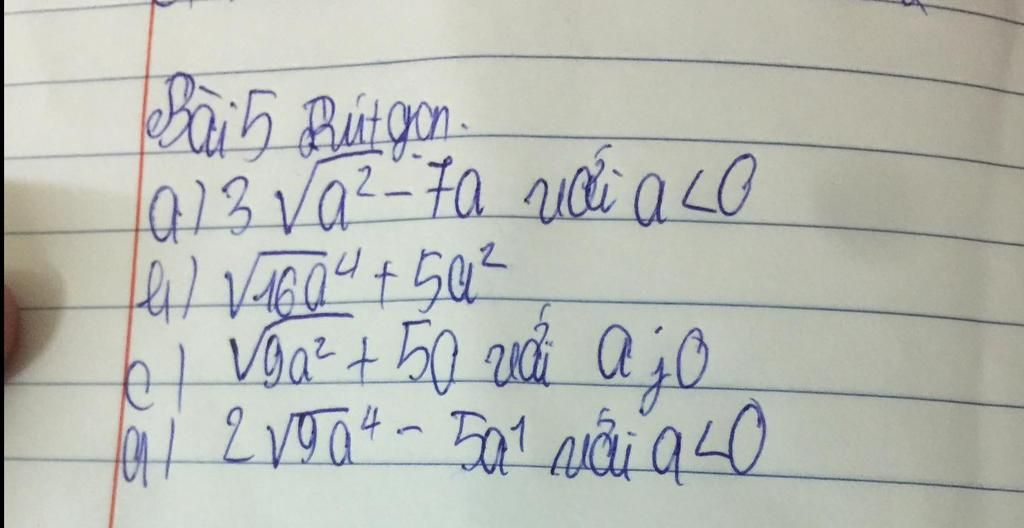 Bài 5 Rút gọn.
a) 3√a² - 7a với a < 0
b) √16a⁴ + 5a²
c) √9a² + 50 với a ; 0
d) 2√9a⁴ - 5a¹ với a < 0